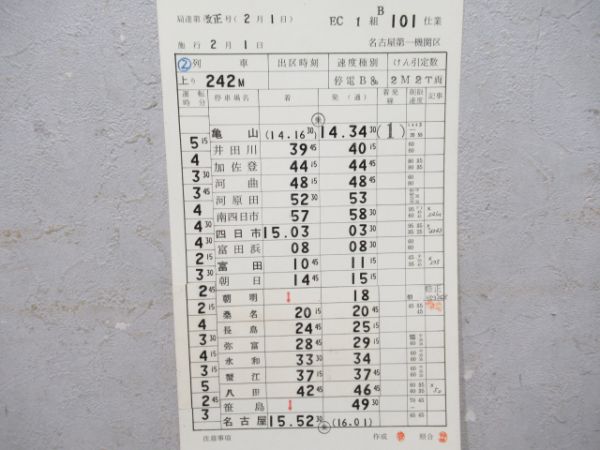 局達第 改正 号 ( 2 月 1 日 ) EC 1 組 B 101 仕業
施行 2 月 1 日 名古屋第一機関区
② 列車 出区時刻 速度種別 けん引定数
上り 242M 停電B 2M2T両
運転時分 停車場名 着 発(通) 着発線 制限速度 記事
乗
亀山 (14.16 30 14.34 30 (1)
5 15 井田川 39 45 40 15
4 加佐登 44 15 44 45
3 30 河曲 48 15 48 45
3 45 河原田 52 30 53
4 南四日市 57 58 30
4 四日市 15.03 03 30
4 30 富田浜 08 08 30
2 15 富田 10 45 11 15
3 30 朝日 14 45 15 15
2 45 朝明 ↓ 18
2 15 桑名 20 15 20 45
4 長島 24 45 25 15
3 30 弥富 28 45 29 15
4 15 永和 33 30 34
3 15 蟹江 37 15 37 45
5 八田 42 45 46 45
2 45 笹島 ↓ 49 30
3 名古屋 15.52 30 (16.01)
注意事項 作成 照合